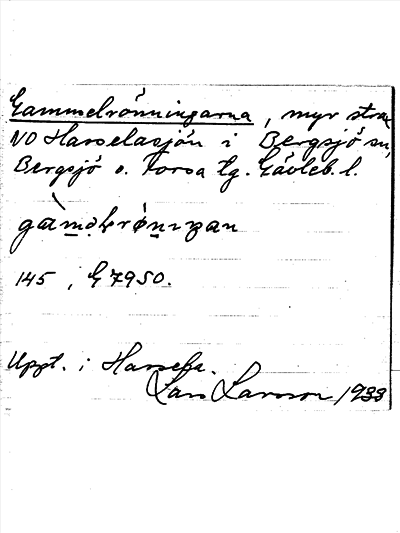 Gammelrönningarna, myr strax
NO Harselasjön i Bergsjö sn,
Bergsjö o. Forsa tg. Gävleb. l.
145, G 7950.
Uppt. i Harsela.
Lars Larsson 1933